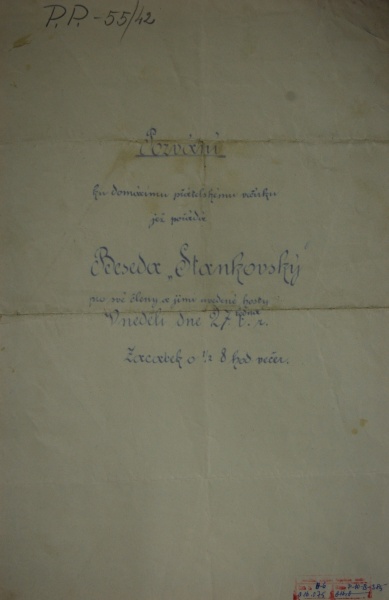 P.P.-55/42
Pozvání
ku domácímu přátelskému večírku
jež pořádá
Beseda „Stankovský"
pro své členy a jimi uvedené hosty
V neděli dne 27. t. r.
Začátek o 1/2 8 hod večer.